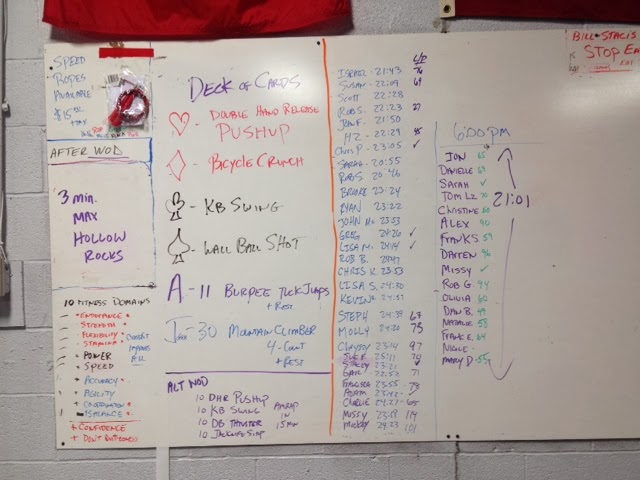 SPEED
ROPES
AVAILABLE
$15.00
+TAX
AFTER WOD
3 min.
MAX
HOLLOW
ROCKS
10 FITNESS DOMAINS
ENDURANCE
STRENGTH
FLEXIBILITY
STAMINA
CROSSFIT
IMPROVES
ALL
POWER
SPEED
ACCURACY
AGILITY
COORDINATION
BALANCE
+ CONFIDENCE
DECK OF CARDS
- DOUBLE HAND RELEASE
PUSHUP
- BICYCLE CRUNCH
- KB SWING
- WALL BALL SHOT
A - 11 BURPEE TUCK JUMPS
+ REST
- 30 MOUNTAIN CLIMBER
4-COUNT
+ REST
ALT WOD
10 DHR PUSHUP
10 KB SWING
10 DB THRUSTER
10 JACKKNIFE SITUP
AMRAP
IN
15 MIN
ISRAEL - 21:43 76
SUSAN - 22:09 69
SCOTT - 22:28
ROB S. - 22:23 27
JEAN F. - 21:50
HZ - 22:29
CHRIS P. - 23:05 ✓
SARAH - 20:55
ROB S - 20:46
BROOKE - 23:24
RYAN - 23:22
JOHN M. - 23:53
GREG - 24:26 ✓
LISA M. - 24:14 ✓
ROB B. - 24:47
CHRIS K. - 23:53
LISA S. - 24:30
KEVIN - 24:37
STEPH 24:39 67
MOLLY 24:20 75
CHRYSSY 23:14 97
25:11
STACEY 23:21 ✓
22:52 71
23:55 73
ADAM 23:42
CHARLIE 24:27 65
MISSY 23:19 114
MICKEY 24:23 101
6:00 PM
JON 65
DANIELLE 63
SARAH ✓
TOM LZ 70
CHRISTINE 60
ALEX 90
FRANK S 59
DARREN 96
MISSY ✓
ROB G. 94
OLIVIA 60
DAN B. 49
NATALIE 58
FRANK E. 64
NICOLE
MARY D 55
21:01
BILL + STACI'S
STOP